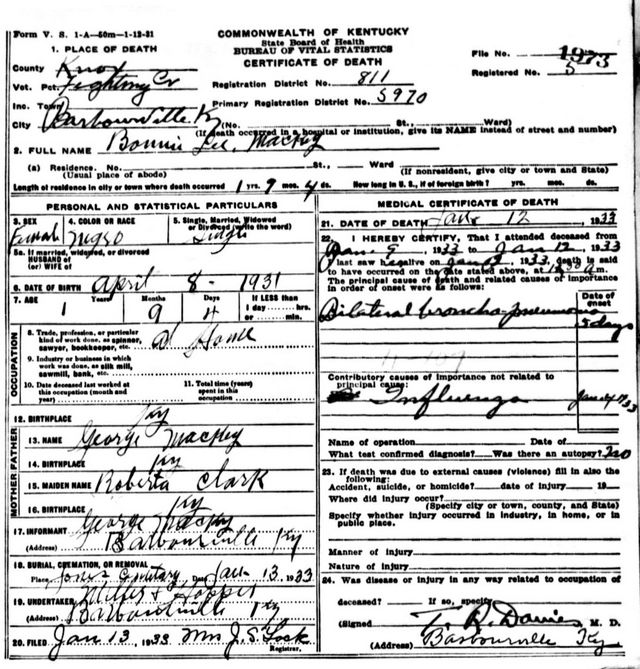 Form V. S. 1-A—50m—1-12-31
COMMONWEALTH OF KENTUCKY
State Board of Health
BUREAU OF VITAL STATISTICS
CERTIFICATE OF DEATH
File No. 1973
Registered No. 5
1. PLACE OF DEATH
County Knox
Vot. Pct. Fighting Cr
Registration District No. 811
Inc. Town
Primary Registration District No. 5970
City Barbourville Ky (No. St., Ward)
(If death occurred in a hospital or institution, give its NAME instead of street and number)
2. FULL NAME Bonnie Lee Mackey
(a) Residence. No. St., Ward
(Usual place of abode) (If nonresident, give city or town and State)
Length of residence in city or town where death occurred 1 yrs. 9 mos. 4 ds. How long in U. S., if of foreign birth? yrs. mos. ds.
PERSONAL AND STATISTICAL PARTICULARS
3. SEX Female
4. COLOR OR RACE Negro
5. Single, Married, Widowed or Divorced (write the word) Single
5a. If married, widowed, or divorced
HUSBAND of
(or) WIFE of
6. DATE OF BIRTH April 8 - 1931
7. AGE 1 Years 9 Months 4 Days
If LESS than
1 day hrs.
or min.
OCCUPATION
8. Trade, profession, or particular
kind of work done, as spinner,
sawyer, bookkeeper, etc. At Home
9. Industry or business in which
work was done, as silk mill,
sawmill, bank, etc.
10. Date deceased last worked at
this occupation (month and
year)
11. Total time (years)
spent in this
occupation
12. BIRTHPLACE Ky
FATHER
13. NAME George Mackey
14. BIRTHPLACE Ky
MOTHER
15. MAIDEN NAME Roberta Clark
16. BIRTHPLACE Ky
17. INFORMANT George Mackey
(Address) Barbourville Ky
18. BURIAL, CREMATION, OR REMOVAL
Place Jones Cemetary Date Jan 13, 1933
19. UNDERTAKER Miller & Hopper
(Address) Barbourville Ky
20. FILED Jan 13, 1933 Mrs J. S.
Registrar.
MEDICAL CERTIFICATE OF DEATH
21. DATE OF DEATH Jan 12 1933
22. I HEREBY CERTIFY, That I attended deceased from
Jan 9, 1933 to Jan 12, 1933
I last saw h alive on Jan, 1933, death is said
to have occurred on the date stated above, at m.
The principal cause of death and related causes of importance
in order of onset were as follows:
Date of
onset
Bilateral broncho pneumonia 5 days
Contributory causes of importance not related to
principal cause:
Influenza Jan 33
Name of operation Date of
What test confirmed diagnosis? Was there an autopsy? no
23. If death was due to external causes (violence) fill in also the
following:
Accident, suicide, or homicide? date of injury 19
Where did injury occur?
(Specify city or town, county, and State)
Specify whether injury occurred in industry, in home, or in
public place.
Manner of injury
Nature of injury
24. Was disease or injury in any way related to occupation of
deceased? If so, specify
(Signed T. R. Davies M. D.
(Address) Barbourville Ky.